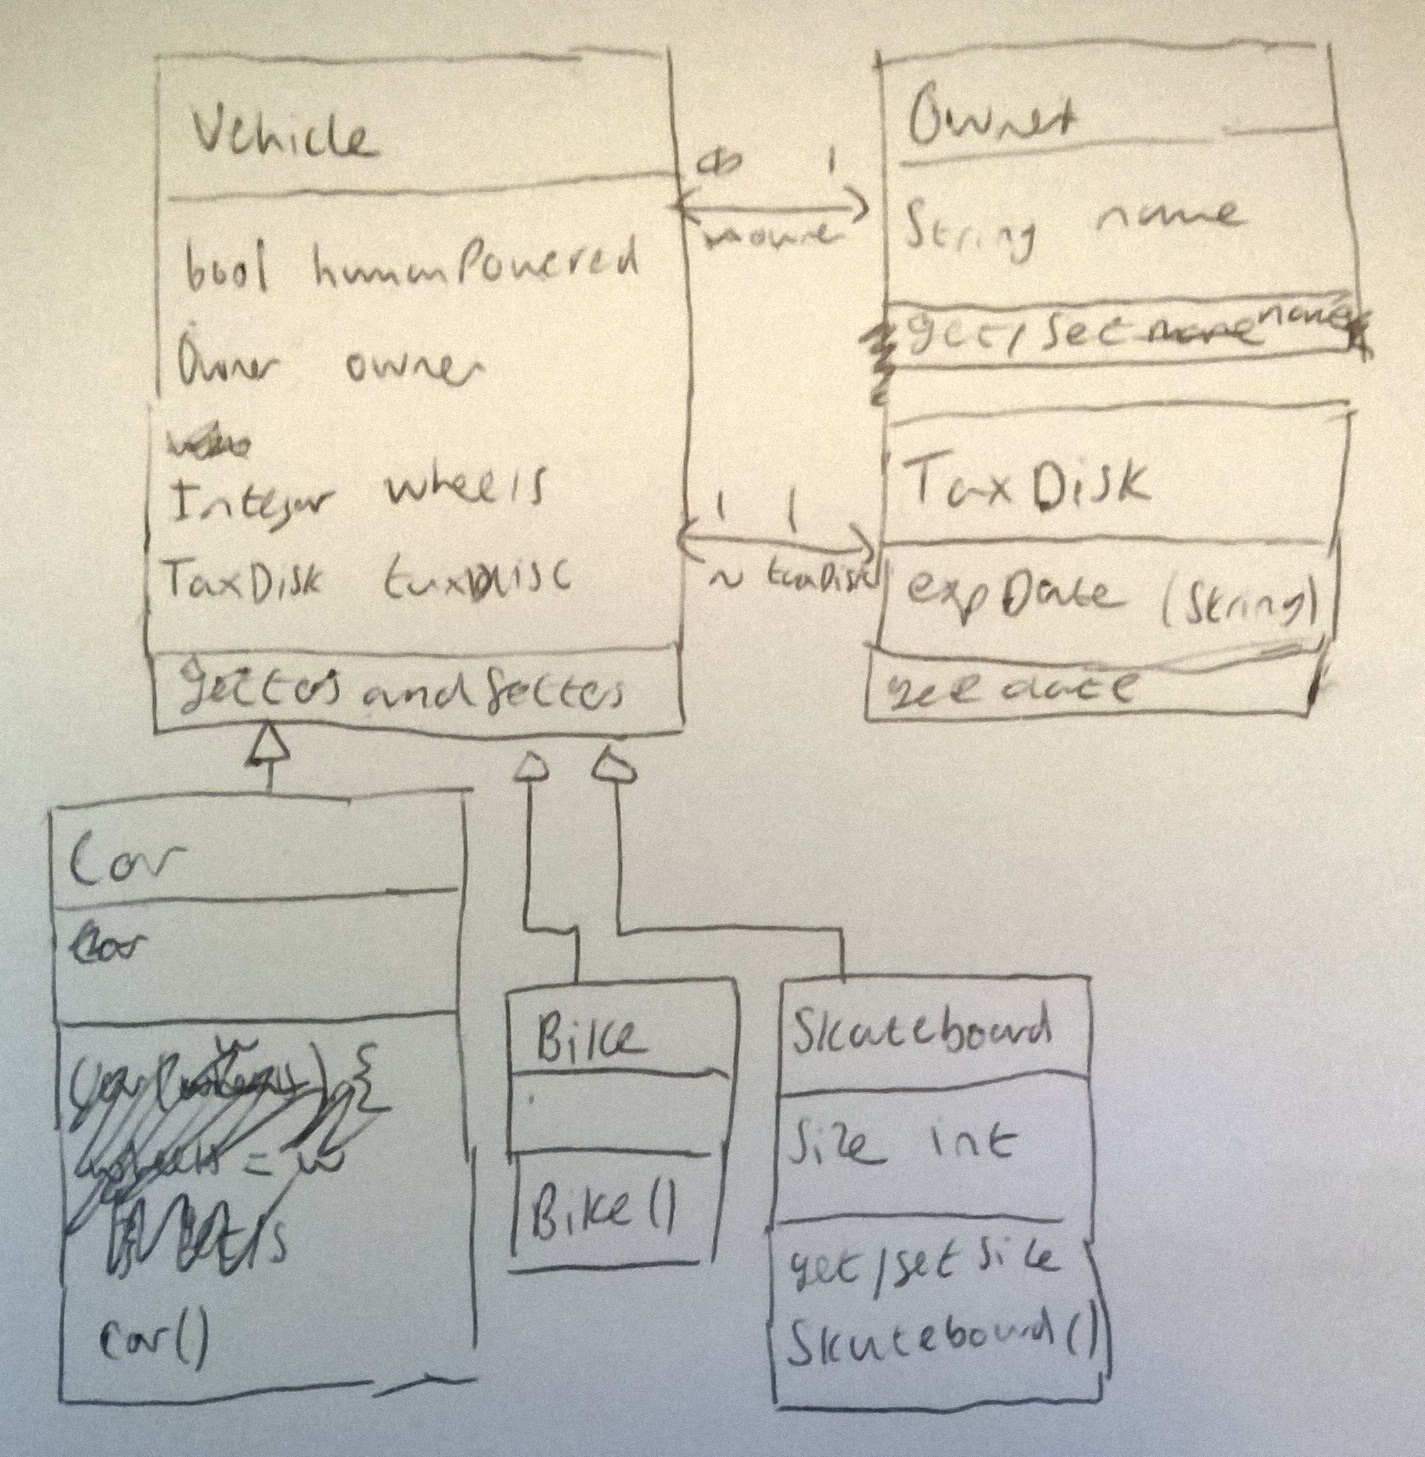 Vehicle
bool humanPowered
Owner owner
Integer wheels
TaxDisk taxDisc
gettes and settes
∞ 1
owner
Owner
String name
get/set name
1 1
~ taxDisk
TaxDisk
expDate (String)
get date
Car
Car
= w
car()
Bike
Bike()
Skateboard
Size int
get/set size
Skateboard()